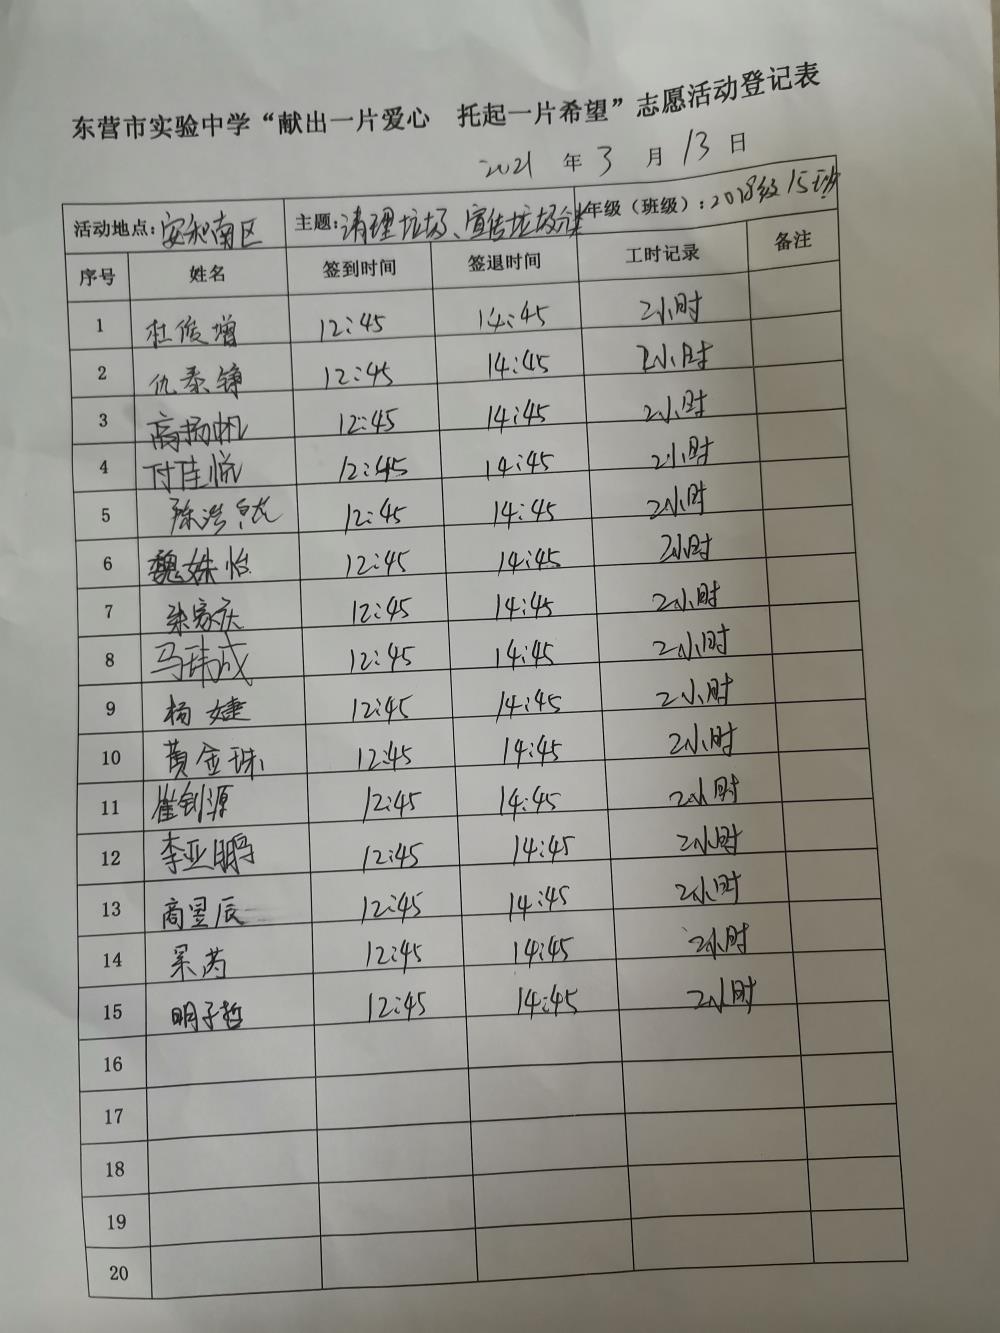 东营市实验中学“献出一片爱心 托起一片希望”志愿活动登记表
2021 年 3 月 13 日
活动地点:安和南区 主题:清理垃圾、宣传垃圾分类 年级（班级）:2018级15班
序号 姓名 签到时间 签退时间 工时记录 备注
1 杜俊增 12:45 14:45 2小时
2 仇泰锋 12:45 14:45 2小时
3 高扬帆 12:45 14:45 2小时
4 付佳悦 12:45 14:45 2小时
5 陈浩然 12:45 14:45 2小时
6 魏姝怡 12:45 14:45 2小时
7 朱家庆 12:45 14:45 2小时
8 马玮成 12:45 14:45 2小时
9 杨婕 12:45 14:45 2小时
10 黄金珠 12:45 14:45 2小时
11 崔钊源 12:45 14:45 2小时
12 李亚鹏 12:45 14:45 2小时
13 商昱辰 12:45 14:45 2小时
14 芮 12:45 14:45 2小时
15 明子哲 12:45 14:45 2小时
16
17
18
19
20